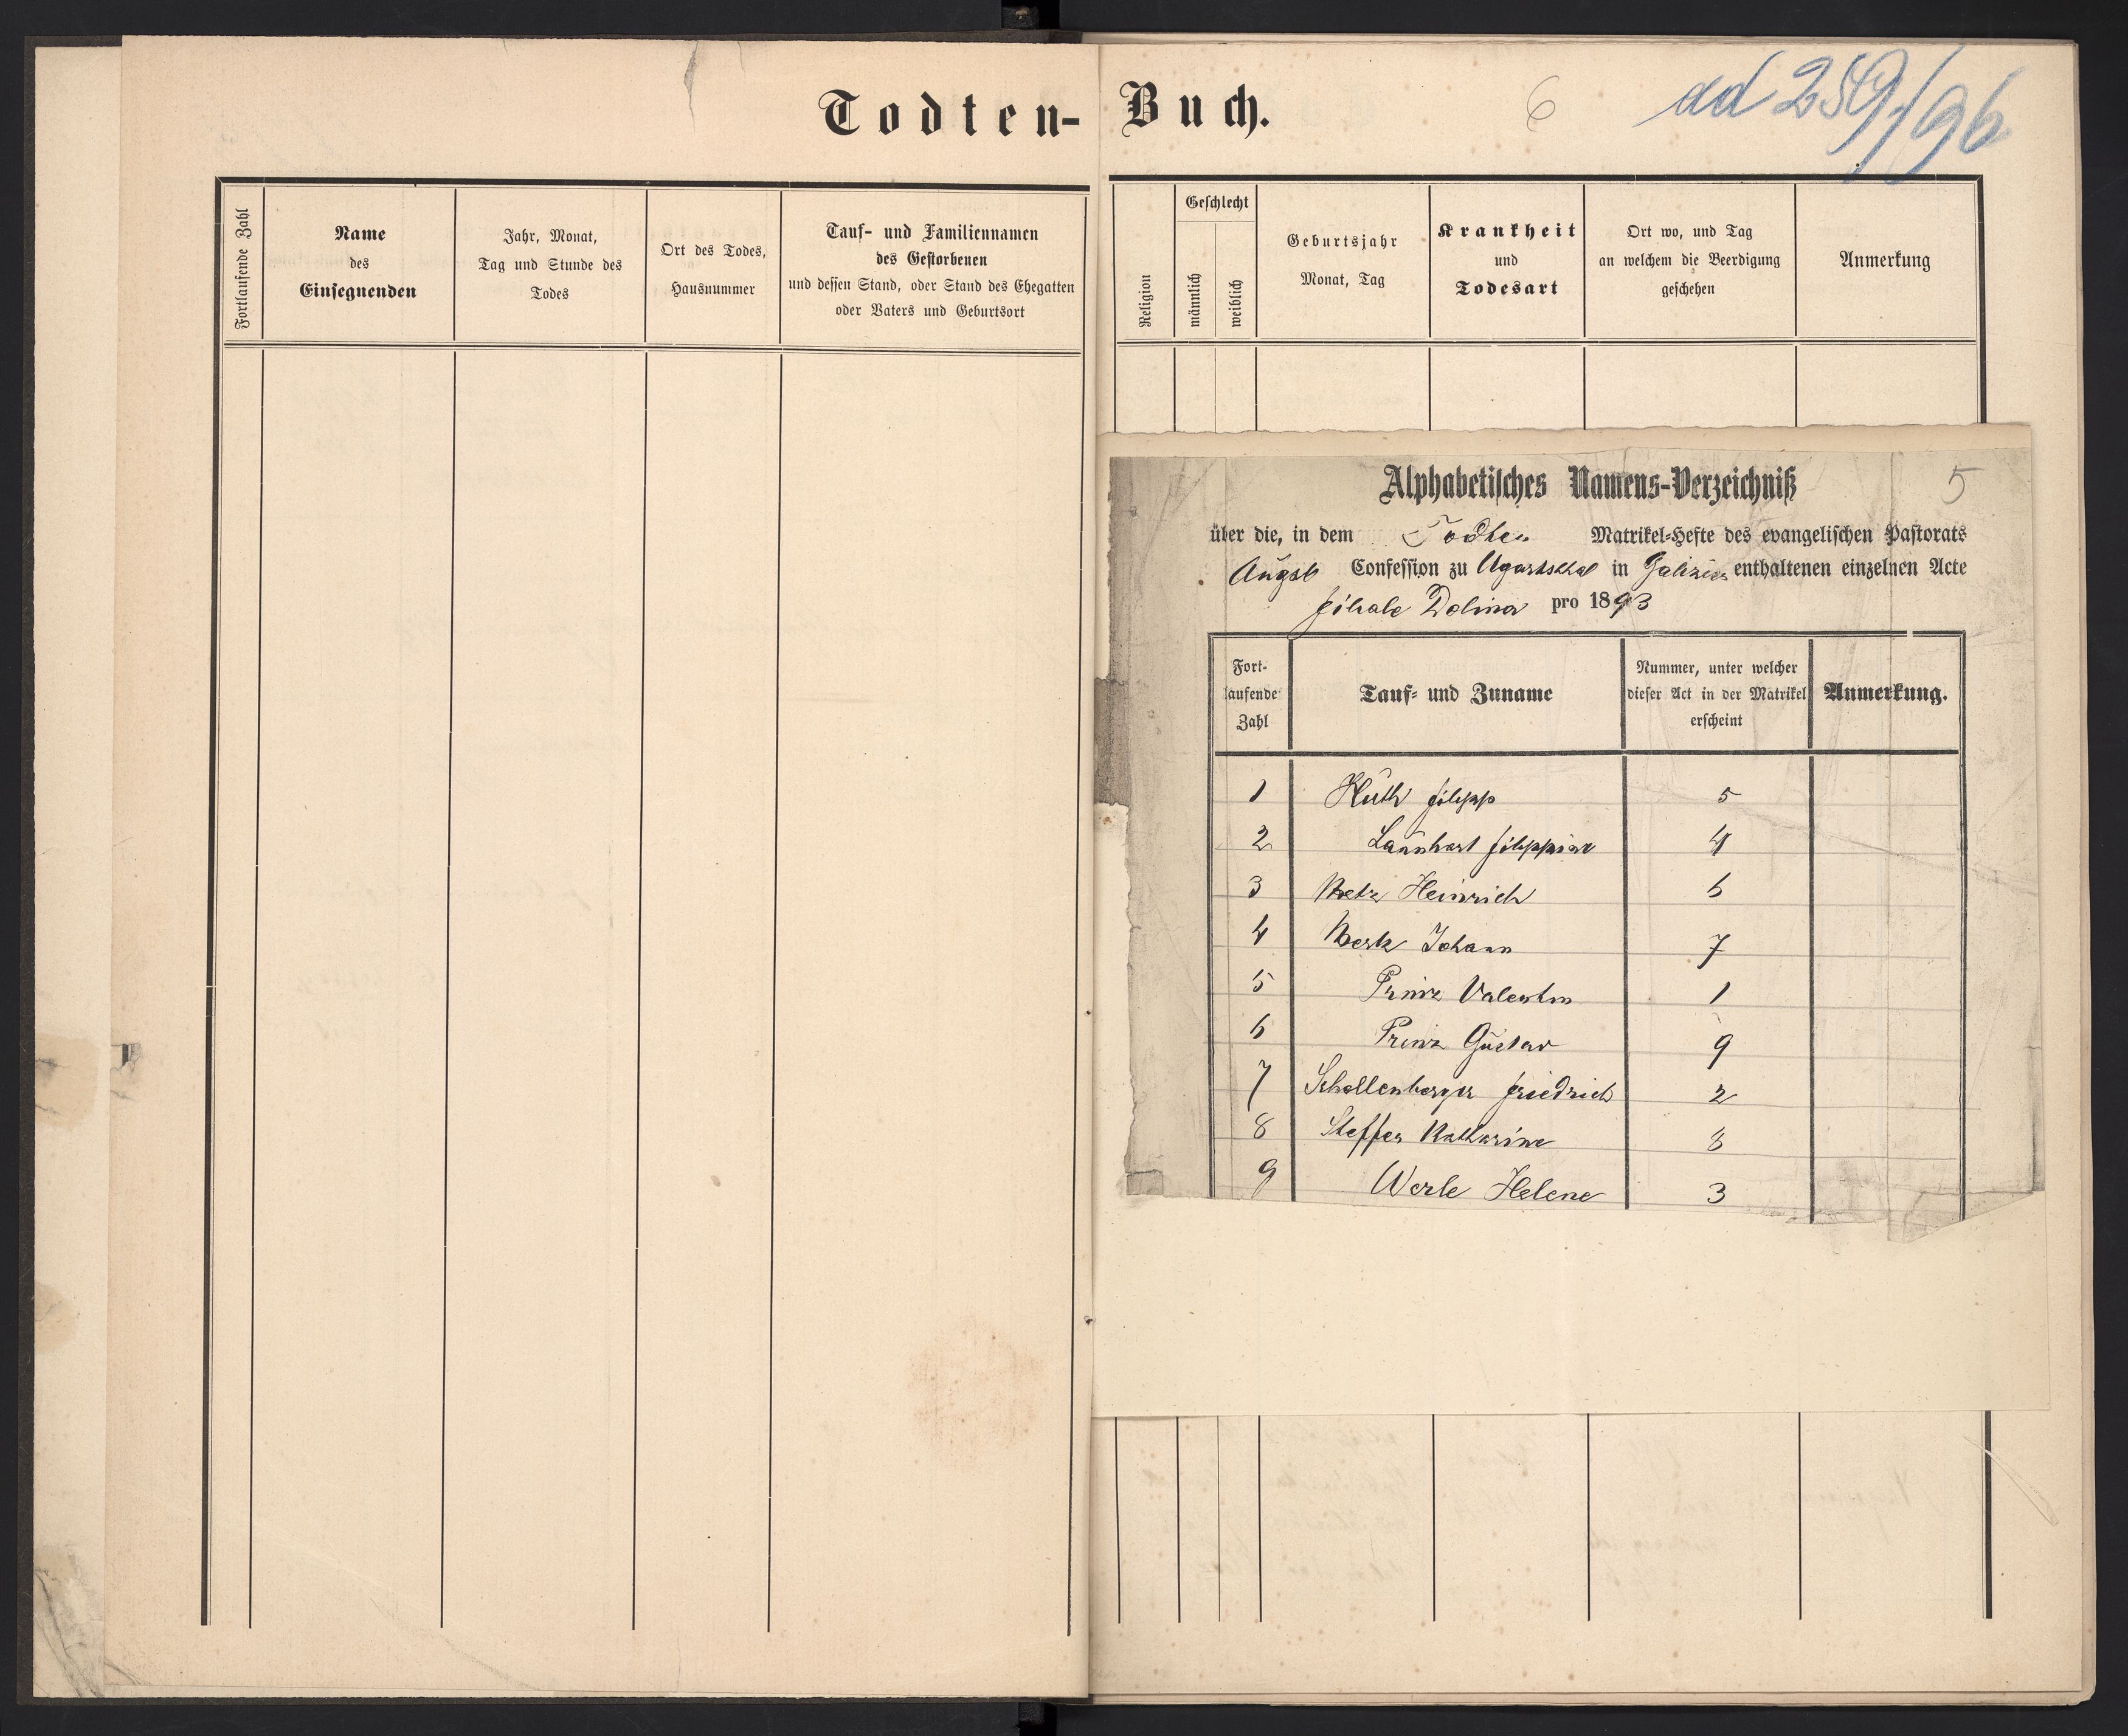 Todten-Buch.
6
ad 259/96
Fortlaufende Zahl
Name
des
Einsegnenden
Jahr, Monat,
Tag und Stunde des
Todes
Ort des Todes,
Hausnummer
Tauf- und Familiennamen
des Gestorbenen
und dessen Stand, oder Stand des Ehegatten
oder Vaters und Geburtsort
Religion
Geschlecht
männlich
weiblich
Geburtsjahr
Monat, Tag
Krankheit
und
Todesart
Ort wo, und Tag
an welchem die Beerdigung
geschehen
Anmerkung
Alphabetisches Namens-Verzeichniß
5
über die, in dem Todten Matrikel-Hefte des evangelischen Pastorats
Augsb Confession zu Ugartsthal in Galizien enthaltenen einzelnen Acte
filiale Dolina pro 1893
Fort-
laufende
Zahl
Tauf- und Zuname
Nummer, unter welcher
dieser Act in der Matrikel
erscheint
Anmerkung.
1 Huth filipp 5
2 Launhart filippine 4
3 Metz Heinrich 6
4 Johann 7
5 Prinz Valentin 1
6 Prinz Gustav 9
7 Schollenberger friedrich 2
8 Steffen Katharine 8
9 Werle Helene 3